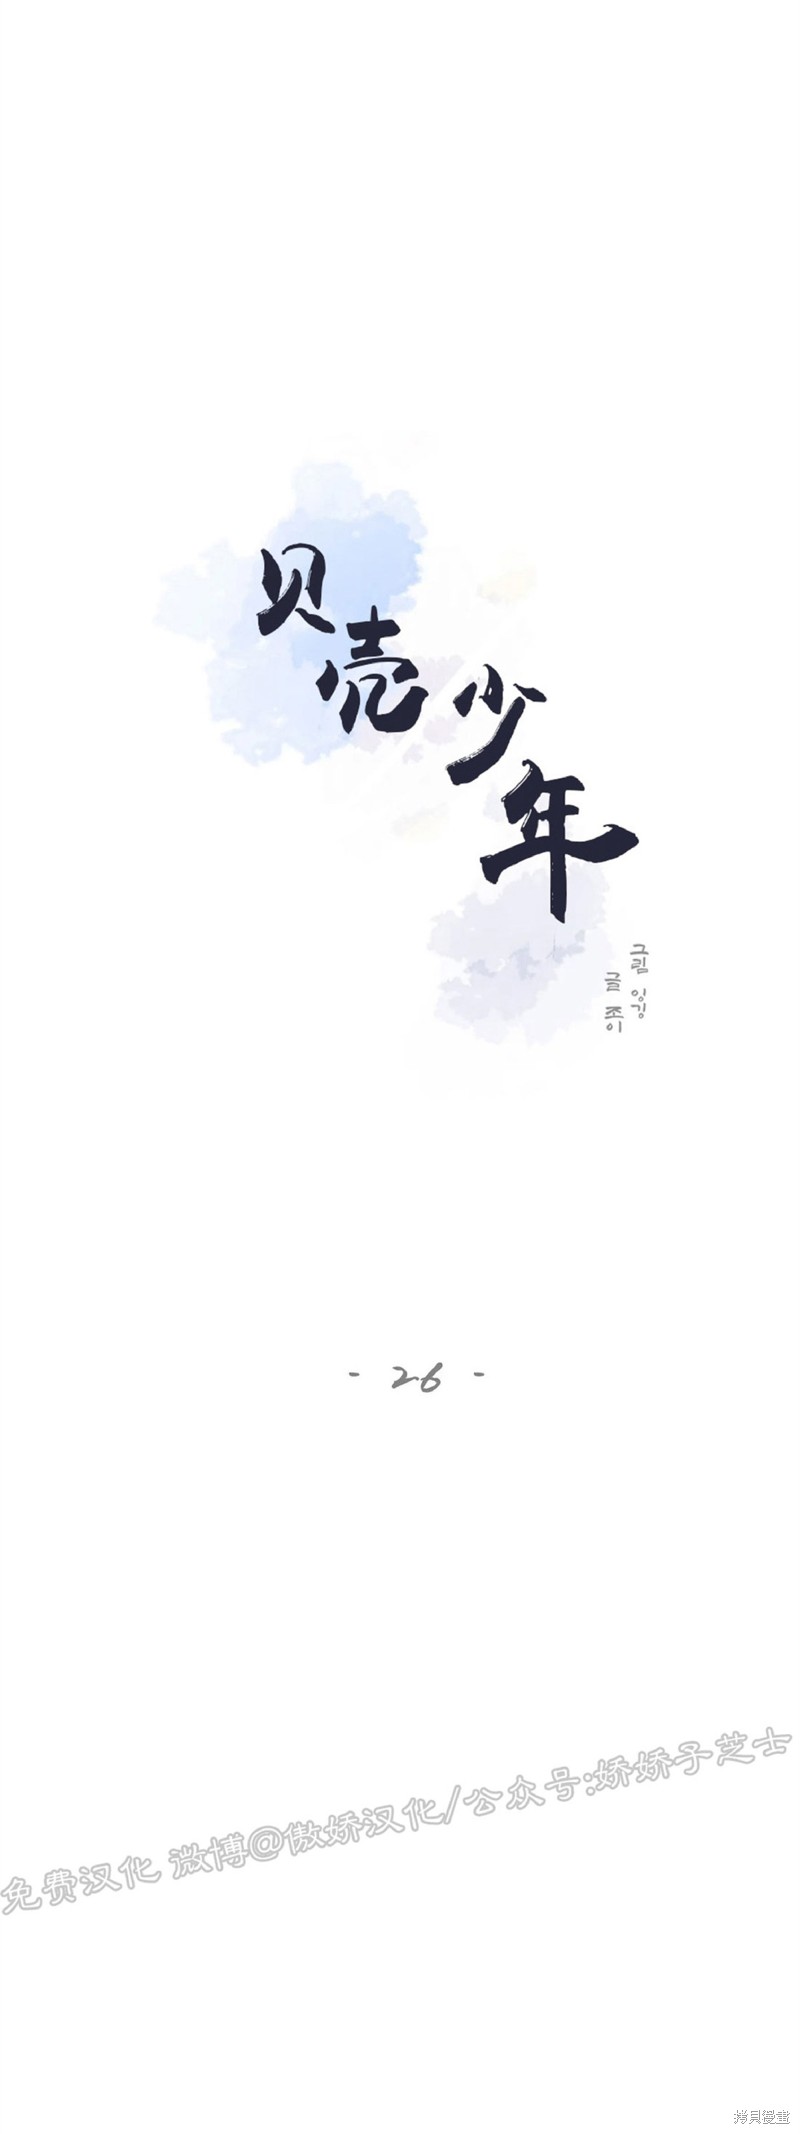 贝壳少年
그림 잉깅
글 죠이
- 26 -
免费汉化 微博@傲娇汉化/公众号:娇娇子芝士
拷貝漫畫